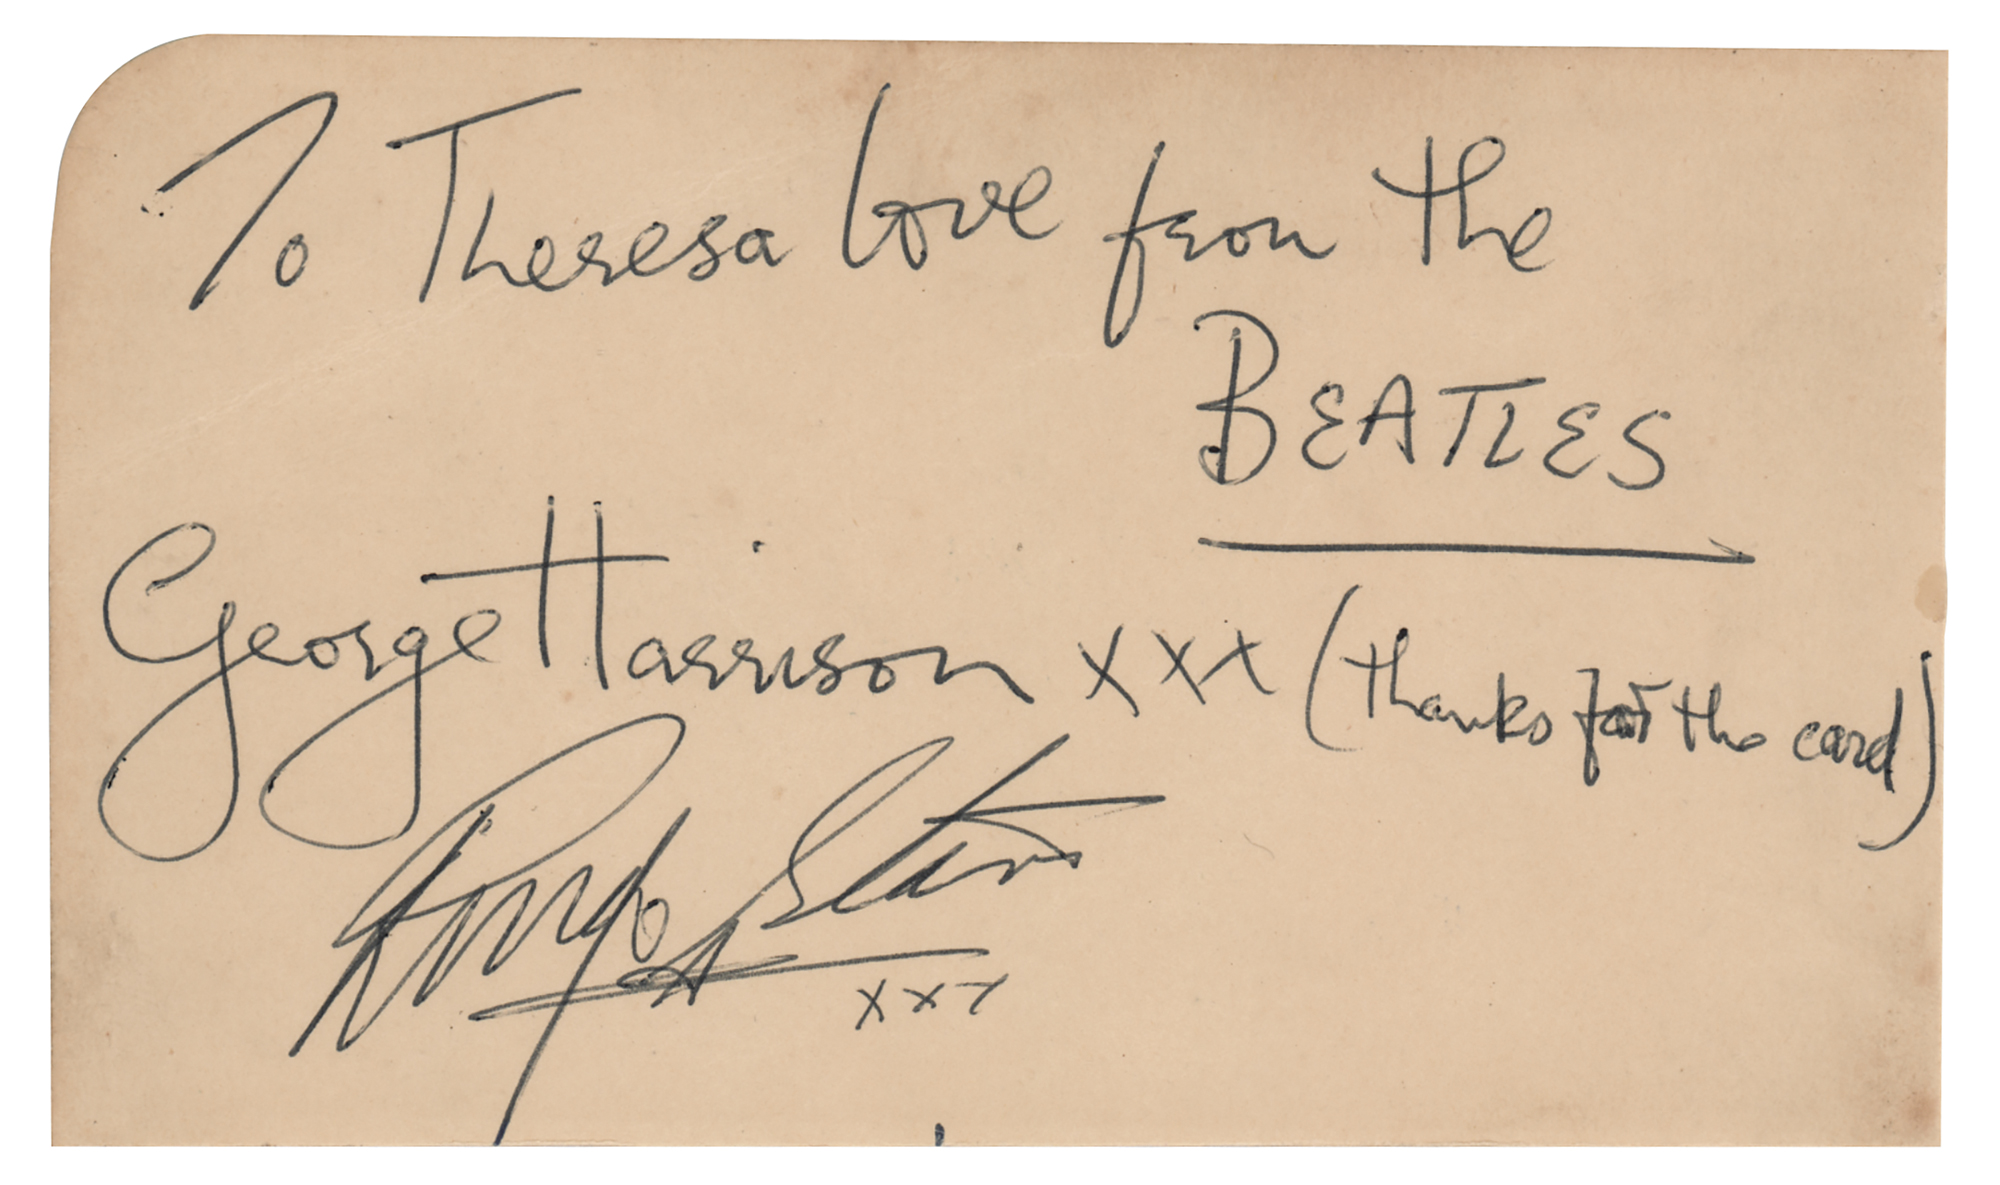 To Theresa love from the
BEATLES
George Harrison xxx (thanks for the card)
Ringo Starr
xxx